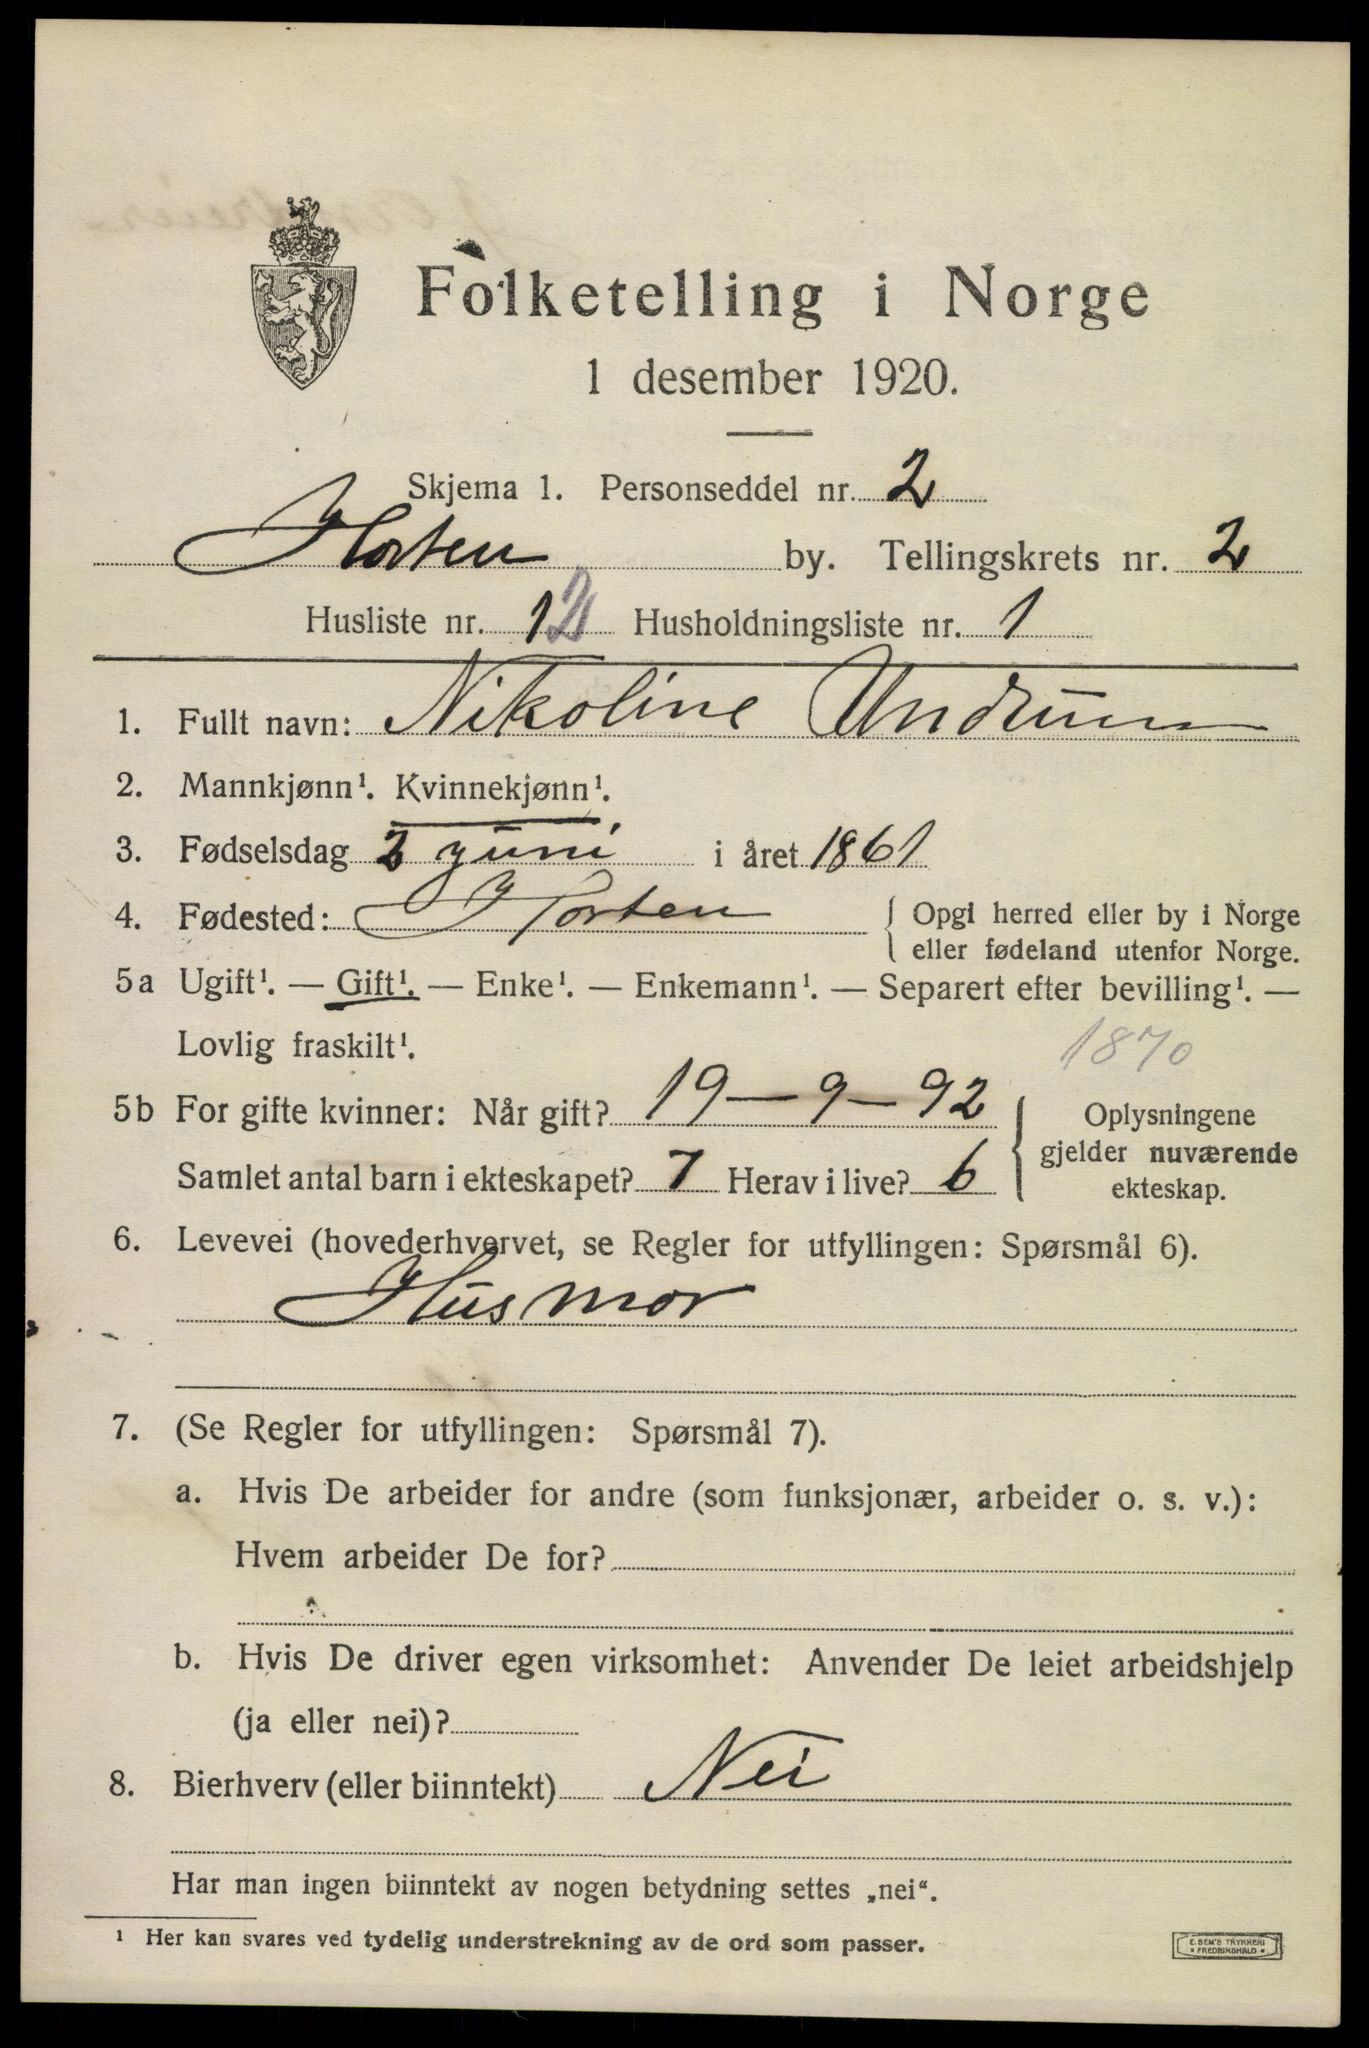 Folketelling i Norge
1 desember 1920.
Skjema 1. Personseddel nr. 2
Horten by. Tellingskrets nr. 2
Husliste nr. 12 Husholdningsliste nr. 1
1. Fullt navn: Nikoline Undrum
2. Mannkjønn¹. Kvinnekjønn¹.
3. Fødselsdag 2 juni i året 1861
4. Fødested: Horten { Opgi herred eller by i Norge
eller fødeland utenfor Norge.
5a Ugift¹. — Gift¹. — Enke¹. — Enkemann¹. — Separert efter bevilling¹. —
Lovlig fraskilt¹. 1870
5b For gifte kvinner: Når gift? 19 — 9 — 92
Samlet antal barn i ekteskapet? 7 Herav i live? 6
{ Oplysningene
gjelder nuværende
ekteskap.
6. Levevei (hovederhvervet, se Regler for utfyllingen: Spørsmål 6).
Husmor
7. (Se Regler for utfyllingen: Spørsmål 7).
a. Hvis De arbeider for andre (som funksjonær, arbeider o. s. v.):
Hvem arbeider De for?
b. Hvis De driver egen virksomhet: Anvender De leiet arbeidshjelp
(ja eller nei)?
8. Bierhverv (eller biinntekt) Nei
Har man ingen biinntekt av nogen betydning settes „nei“.
¹ Her kan svares ved tydelig understrekning av de ord som passer.
E. SEM'S TRYKKERI
• FREDRIKSHALD •